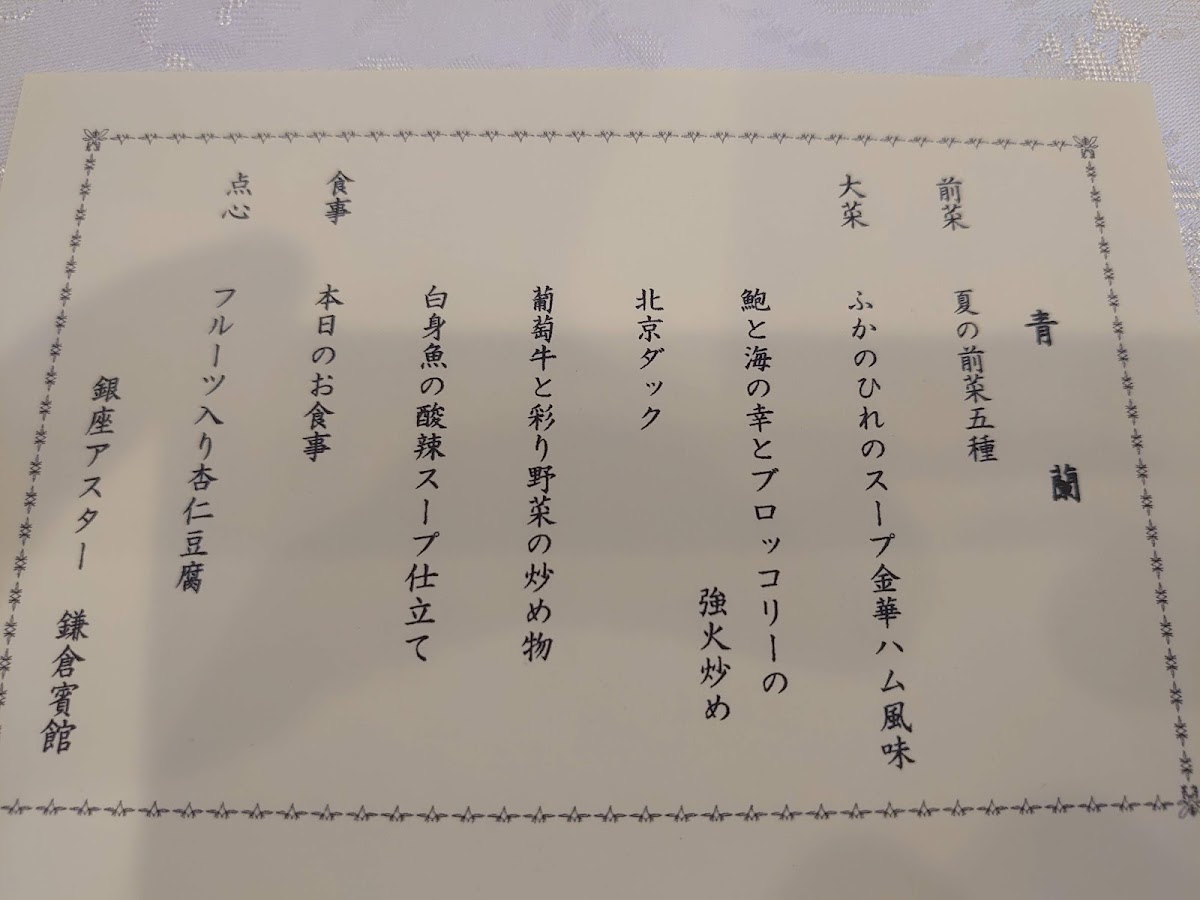 青 蘭
前菜 夏の前菜五種
大菜 ふかのひれのスープ金華ハム風味
鮑と海の幸とブロッコリーの
強火炒め
北京ダック
葡萄牛と彩り野菜の炒め物
白身魚の酸辣スープ仕立て
食事 本日のお食事
点心 フルーツ入り杏仁豆腐
銀座アスター 鎌倉賓館